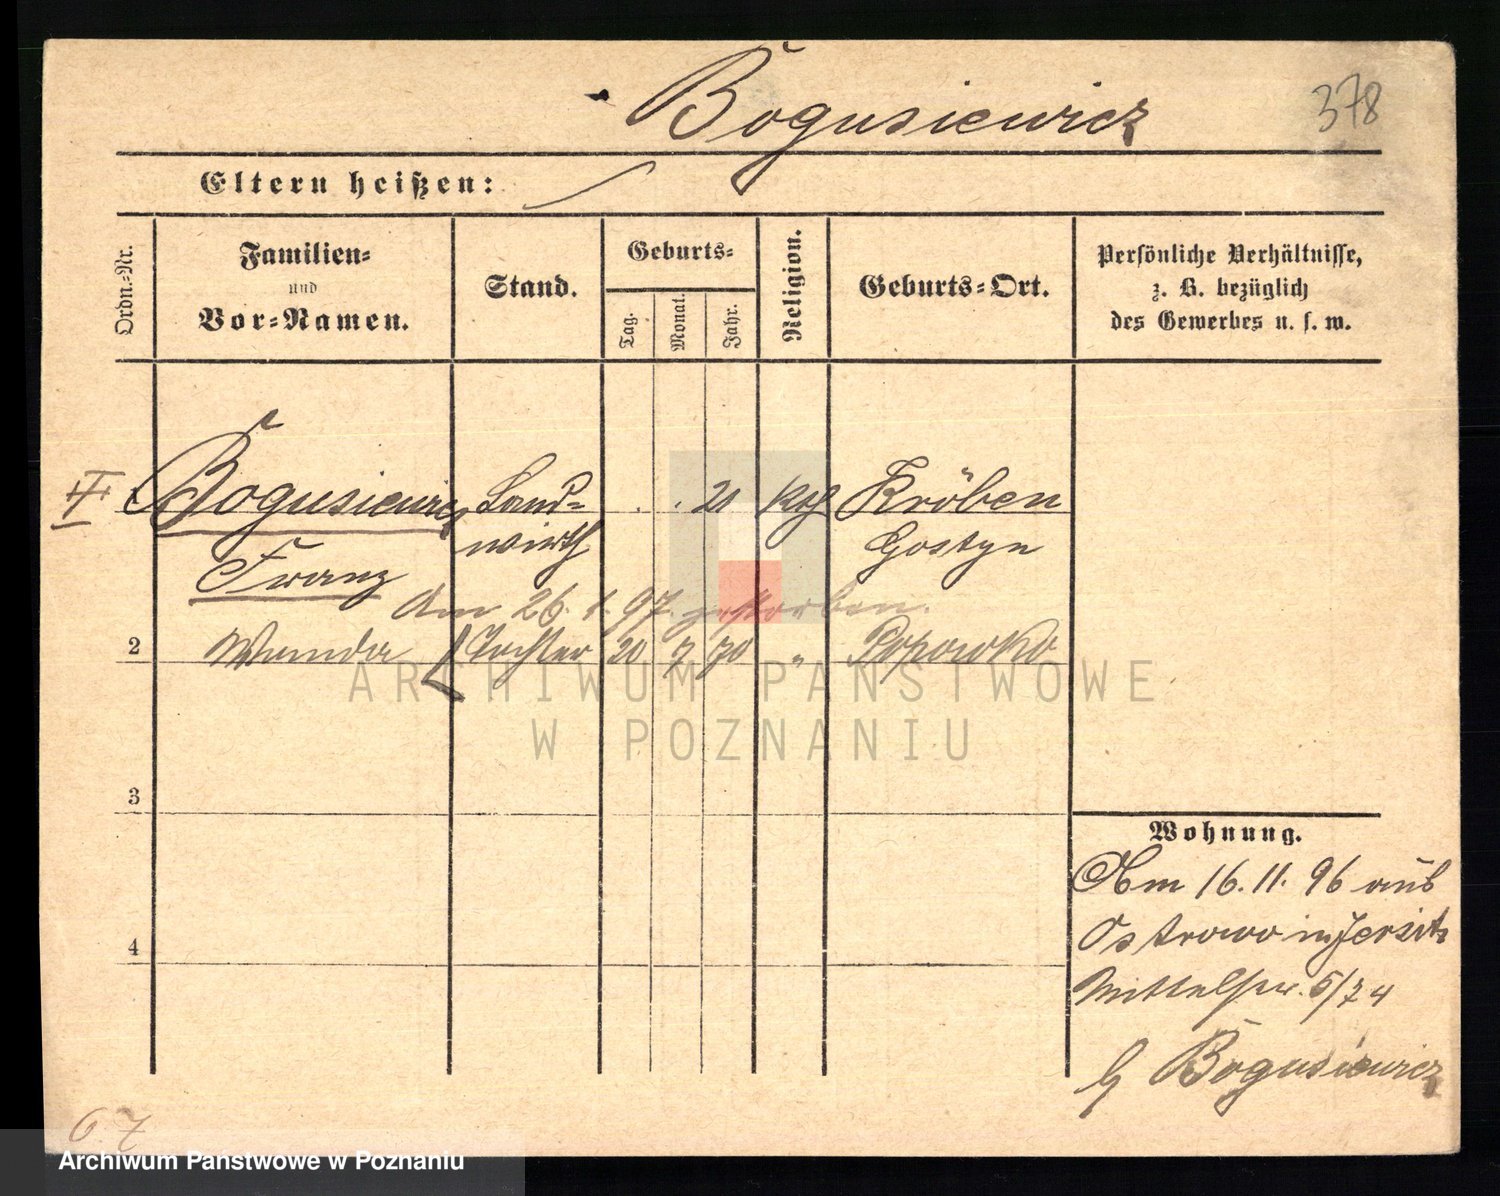 Bogusiewicz
378
Eltern heißen:
Ordn.=Nr.
Familien=
und
Vor=Namen.
Stand.
Geburts=
Tag.
Monat.
Jahr.
Religion.
Geburts=Ort.
Persönliche Verhältnisse,
z. B. bezüglich
des Gewerbes u. s. w.
Bogusiewicz Land= 21 kth Kröben
Franz wirth Gostyn
Am 26. 1. 97. gestorben.
2 Wanda Tochter 20 7 70 " Popowko
ARCHIWUM PAŃSTWOWE
W POZNANIU
3
4
Wohnung.
Am 16. 11. 96 aus
Ostrowo in Jersitz
Mittelstr. 5/7 4
b Bogusiewicz
67
Archiwum Państwowe w Poznaniu